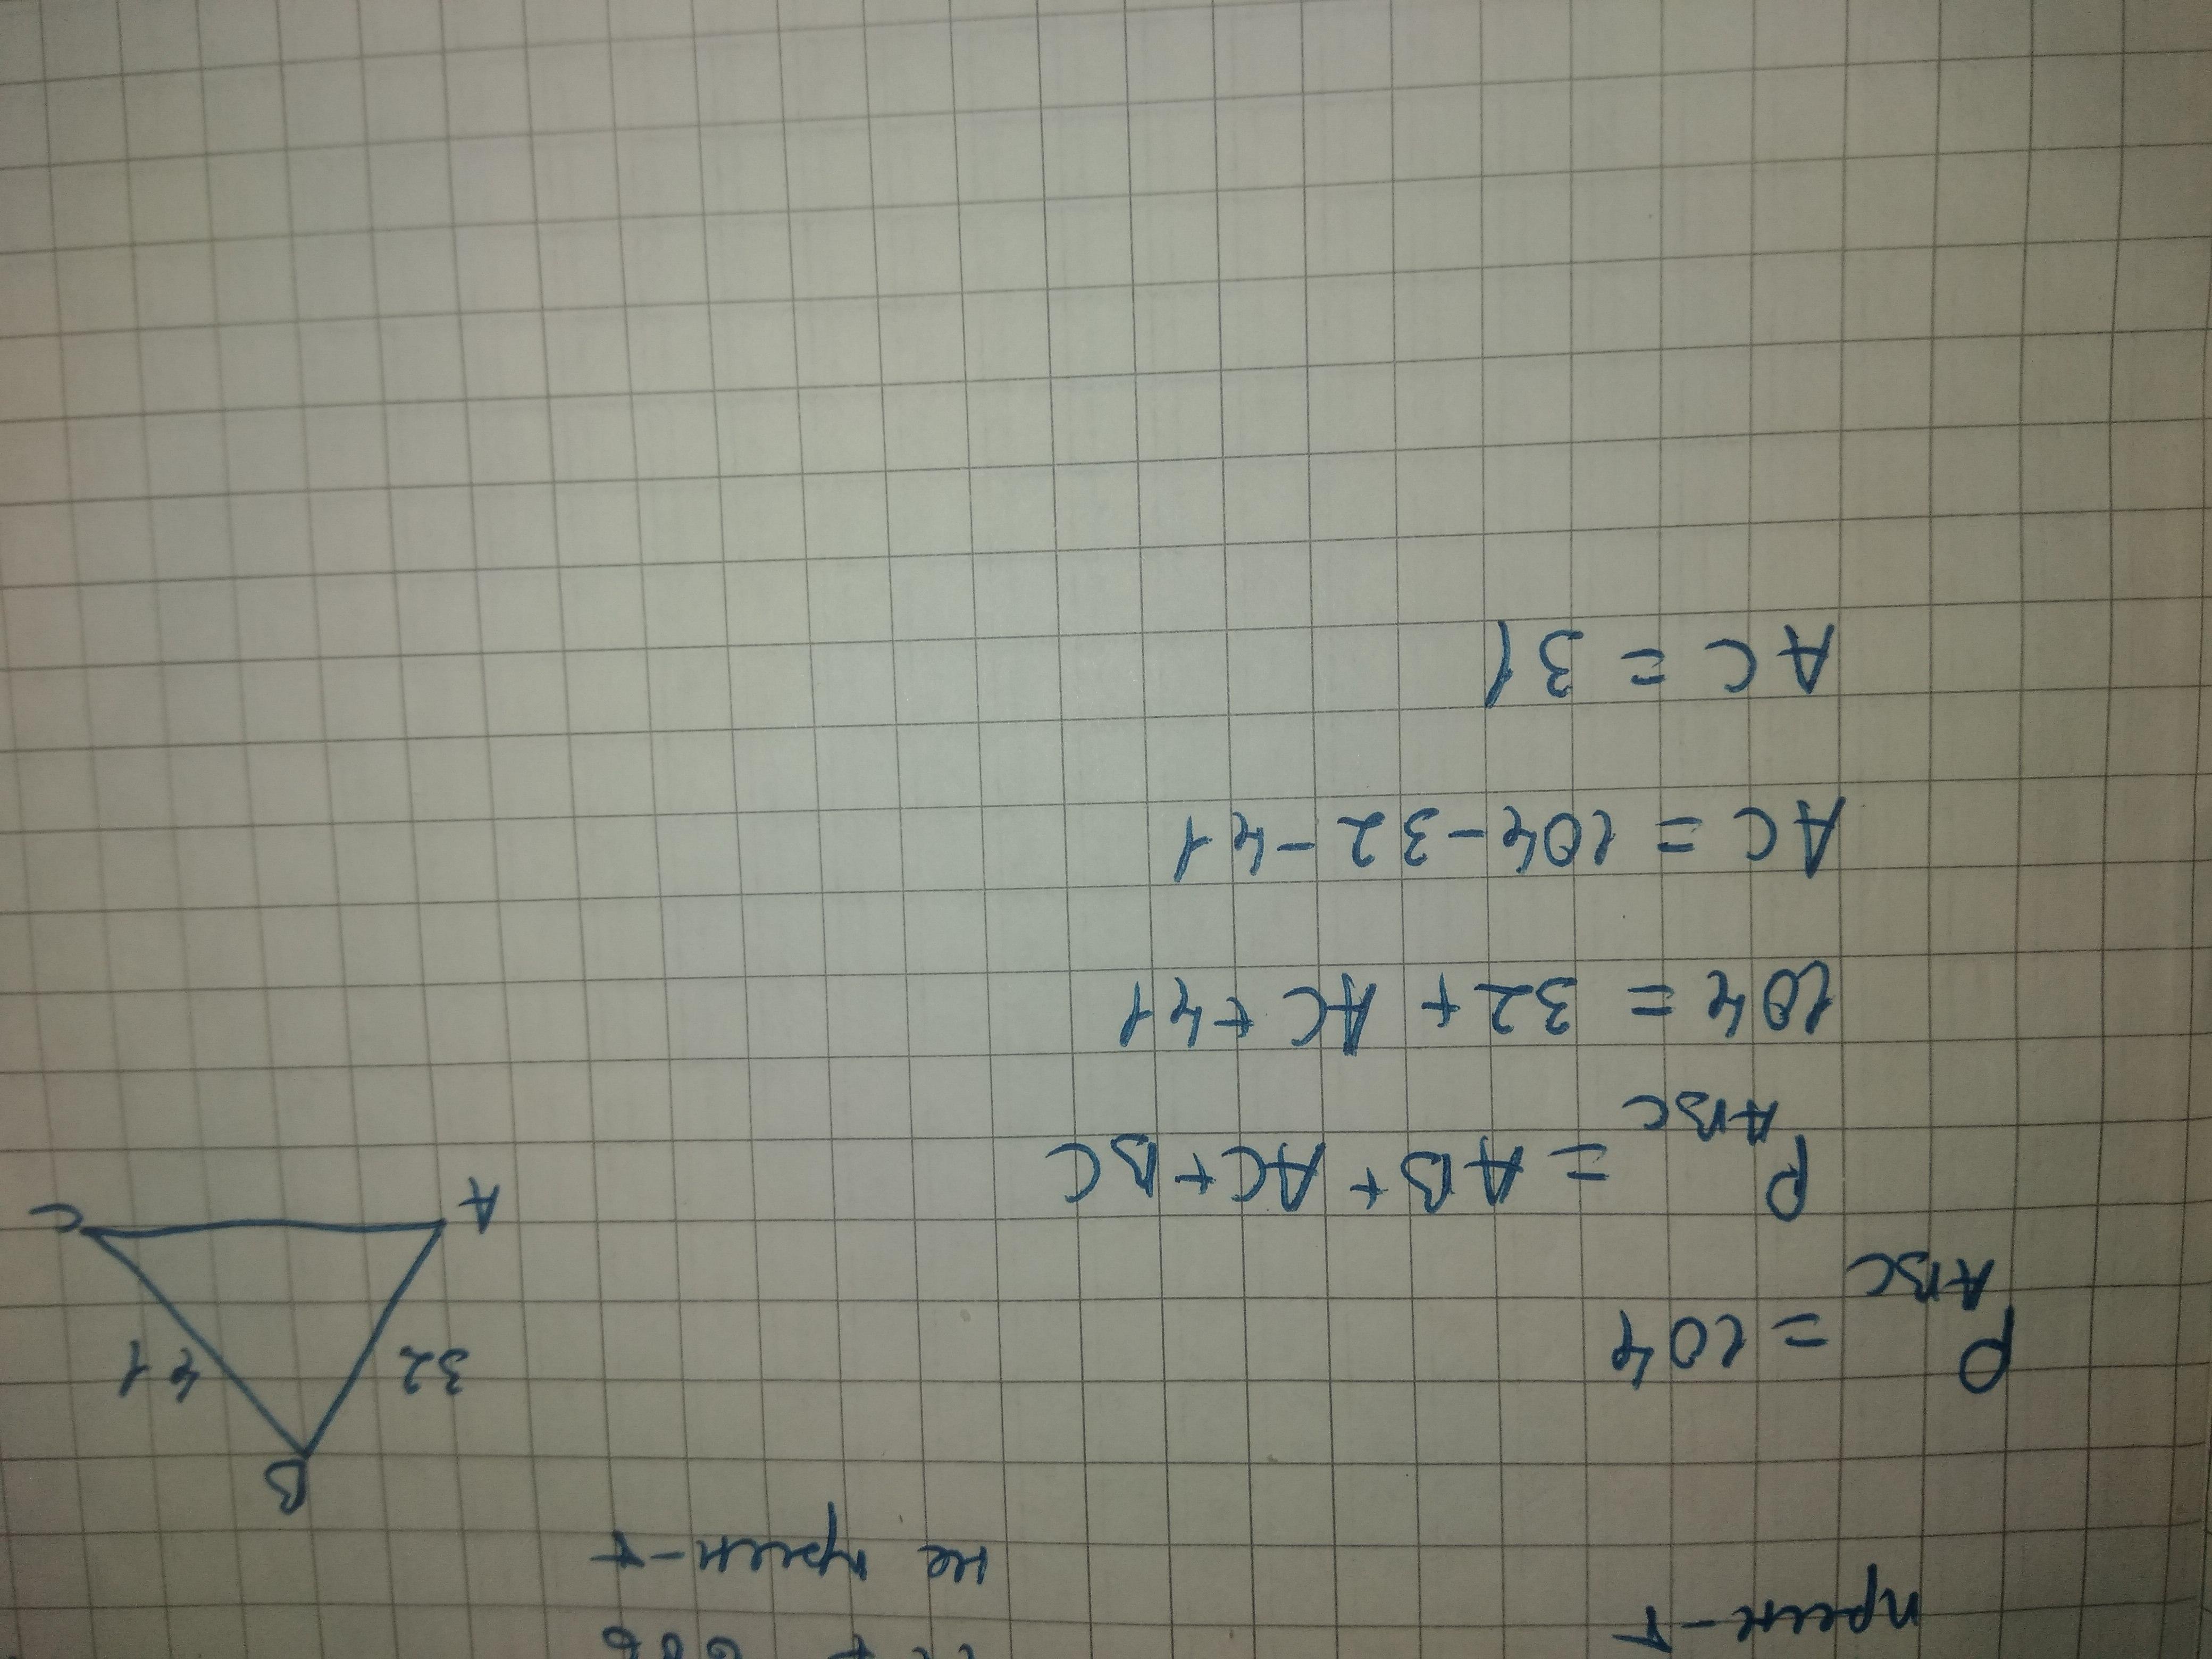 прин-т
не прин-т
P ABC = 104
B
32
41
A
C
P ABC = AB + AC + BC
104 = 32 + AC + 41
AC = 104 - 32 - 41
AC = 31